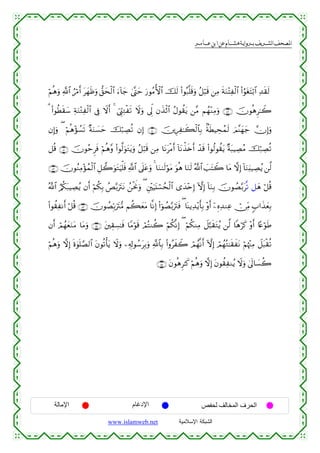 المصحف الشريف برواية هشام عن ابن عامر
لَقَدِ ٱبْتَغَوُا۟ ٱلْفِتْنَةَ مِن قَبْلُ وَقَلَّبُوا۟ لَكَ ٱلْأُمُورَ حَتَّىٰ جَآءَ ٱلْحَقُّ وَظَهَرَ أَمْرُ ٱللَّهِ وَهُمْ
كَٰرِهُونَ ۝ وَمِنْهُم مَّن يَقُولُ ٱئْذَن لِّى وَلَا تَفْتِنِّىٓ ۚ أَلَا فِى ٱلْفِتْنَةِ سَقَطُوا۟ ۗ
وَإِنَّ جَهَنَّمَ لَمُحِيطَةٌۢ بِٱلْكَٰفِرِينَ ۝ إِن تُصِبْكَ حَسَنَةٌ تَسُؤْهُمْ ۖ وَإِن
تُصِبْكَ مُصِيبَةٌ يَقُولُوا۟ قَدْ أَخَذْنَآ أَمْرَنَا مِن قَبْلُ وَيَتَوَلَّوا۟ وَّهُمْ فَرِحُونَ ۝ قُل
لَّن يُصِيبَنَآ إِلَّا مَا كَتَبَ ٱللَّهُ لَنَا هُوَ مَوْلَىٰنَا ۚ وَعَلَى ٱللَّهِ فَلْيَتَوَكَّلِ ٱلْمُؤْمِنُونَ ۝
قُلْ هَل تَّرَبَّصُونَ بِنَآ إِلَّآ إِحْدَى ٱلْحُسْنَيَيْنِ ۖ وَنَحْنُ نَتَرَبَّصُ بِكُمْ أَن يُصِيبَكُمُ ٱللَّهُ
بِعَذَابٍ مِّنْ عِندِهِۦٓ أَوْ بِأَيْدِينَا ۖ فَتَرَبَّصُوٓا۟ إِنَّا مَعَكُم مُّتَرَبِّصُونَ ۝ قُلْ أَنفِقُوا۟
طَوْعًا أَوْ كَرْهًا لَّن يُتَقَبَّلَ مِنكُمْ ۖ إِنَّكُمْ كُنتُمْ قَوْمًا فَٰسِقِينَ ۝ وَمَا مَنَعَهُمْ أَن
تُقْبَلَ مِنْهُمْ نَفَقَٰتُهُمْ إِلَّآ أَنَّهُمْ كَفَرُوا۟ بِٱللَّهِ وَبِرَسُولِهِۦ وَلَا يَأْتُونَ ٱلصَّلَوٰةَ إِلَّا وَهُمْ
كُسَالَىٰ وَلَا يُنفِقُونَ إِلَّا وَهُمْ كَٰرِهُونَ ۝
الحرف المخالف لحفص الإدغام الإمالة
الشبكة الإسلامية www.islamweb.net